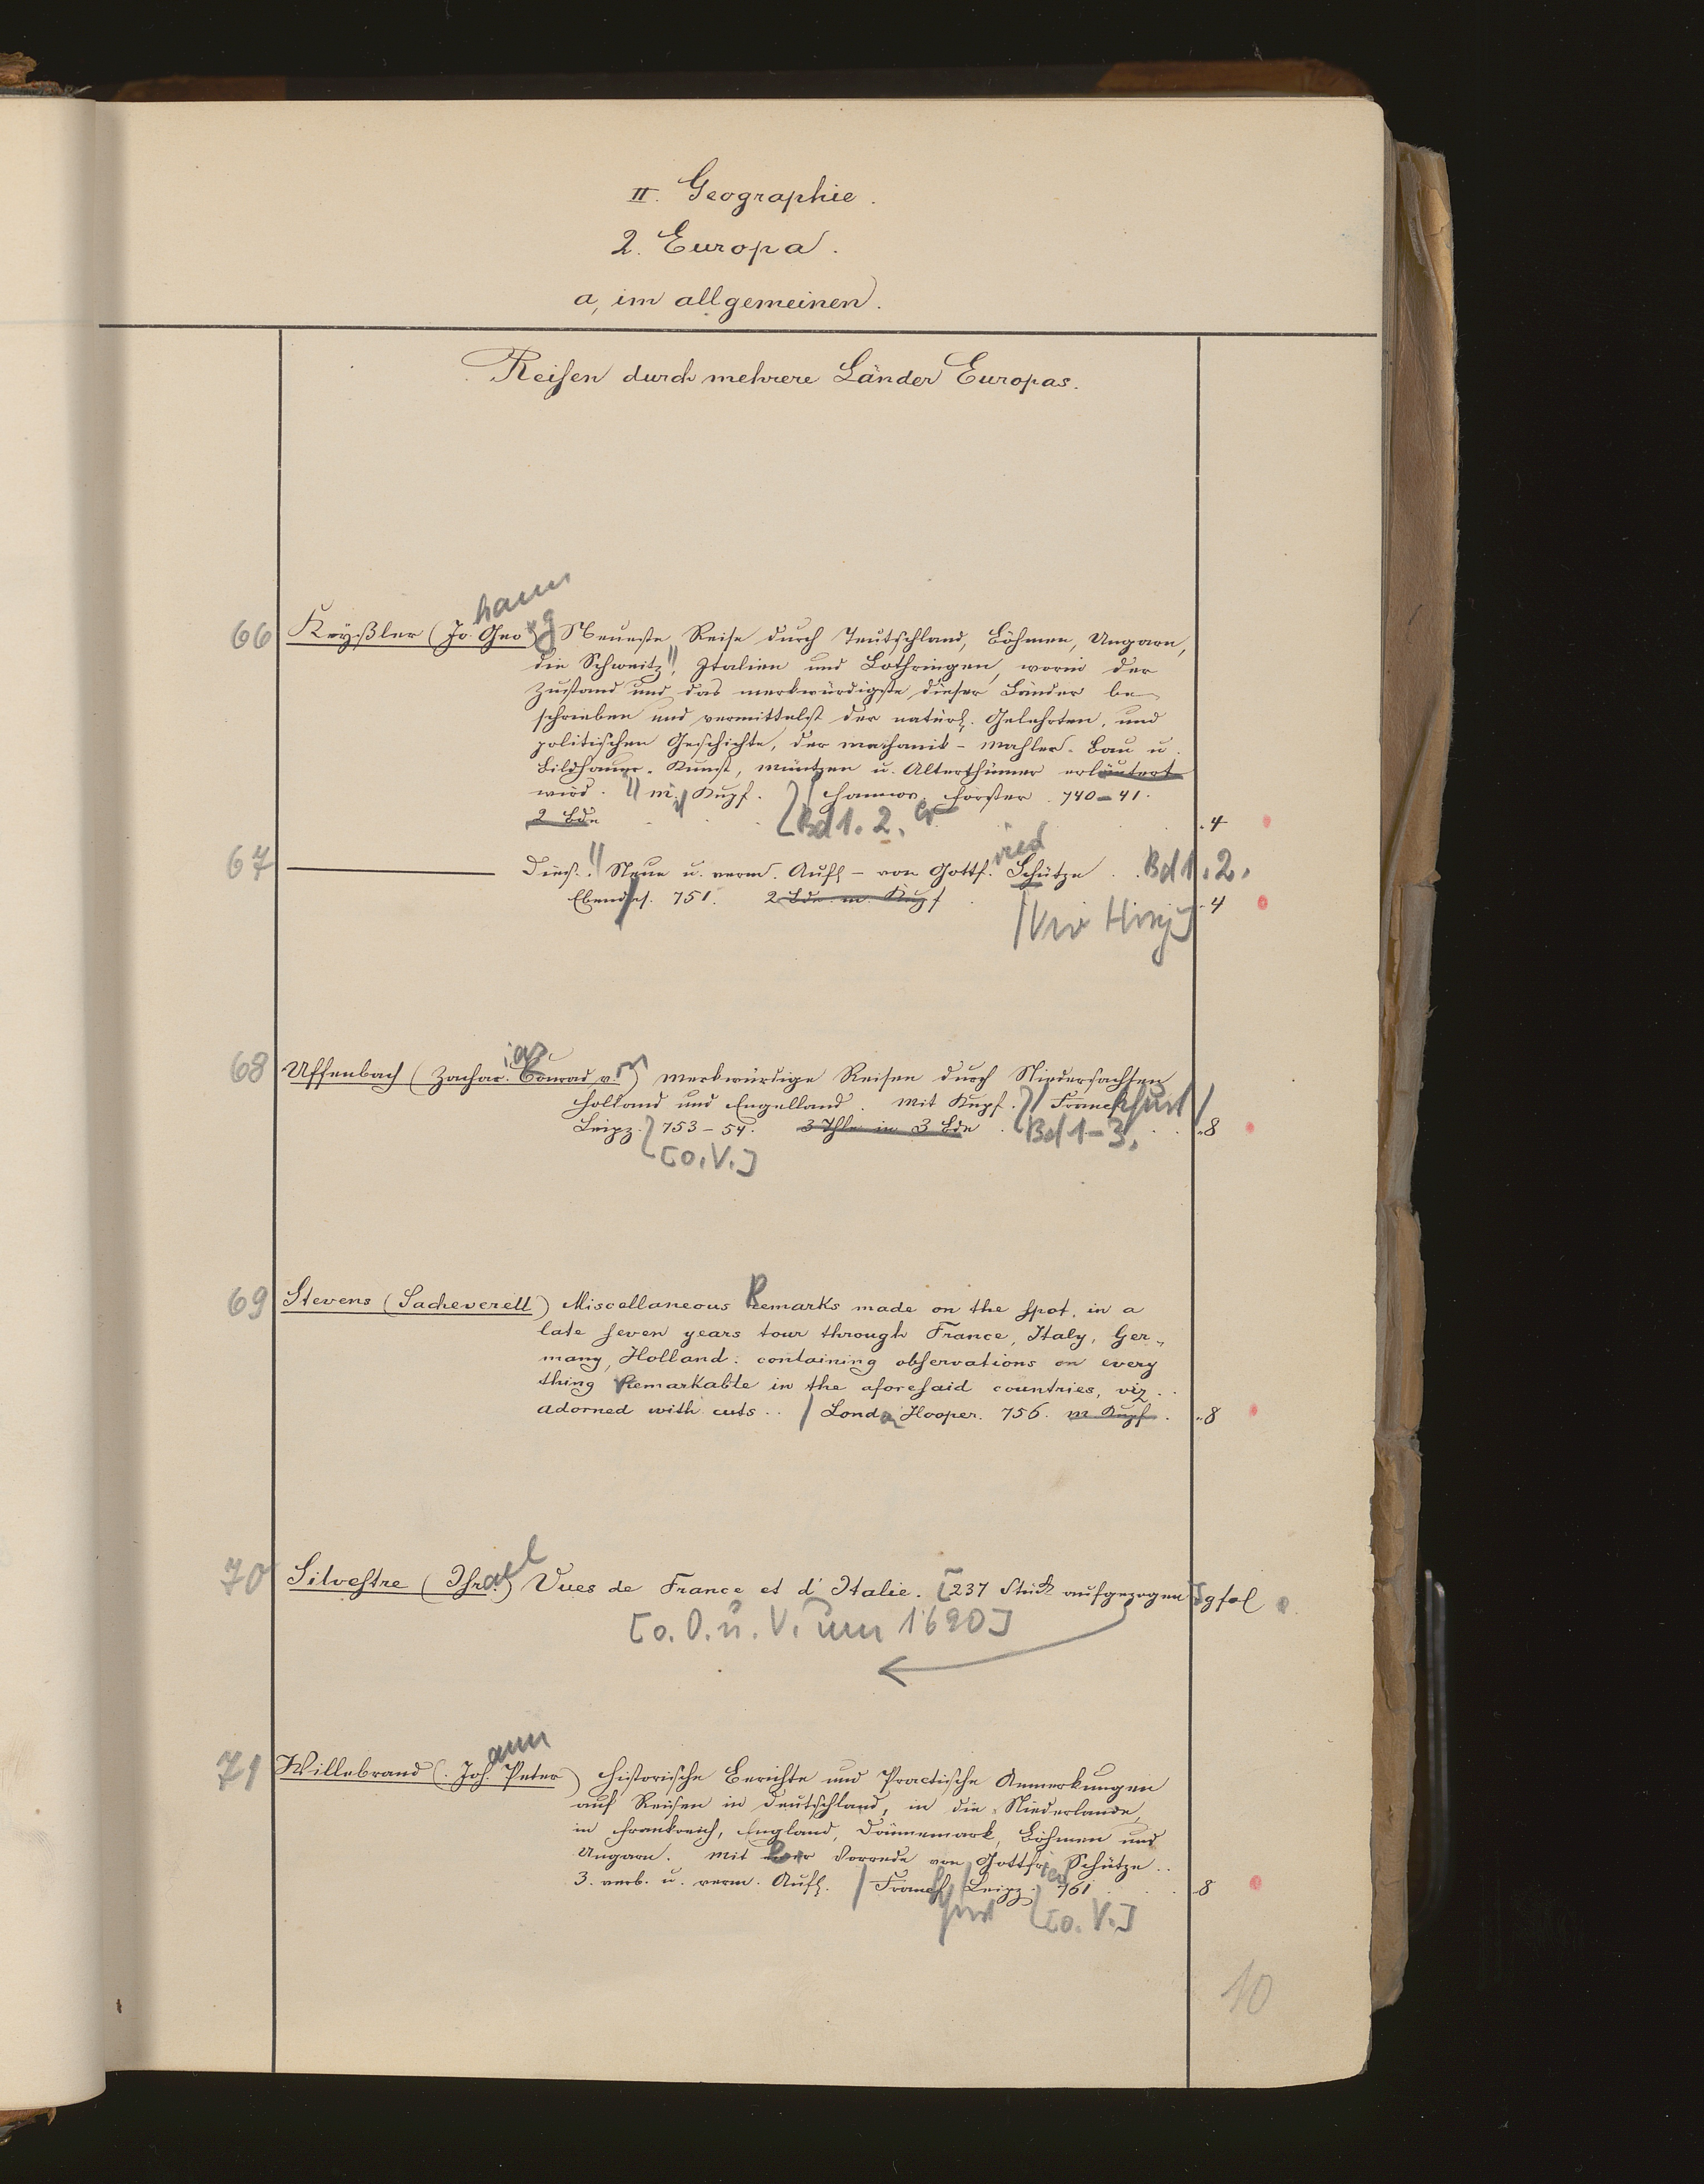 II. Geographie.
2. Europa.
a, im allgemeinen.
Reisen durch mehrere Länder Europas.
66 Keyßler (Jo hann Geo rg) Neueste Reise durch Teutschland, Böhmen, Ungarn,
die Schweitz, Italien und Lothringen, worin der
Zustand und das merkwürdigste dieser Länder be
schrieben und vermittelst der natürl. Gelehrten, und
politischen Geschichte, der mechanik - Mahler. Bau u.
Bildhauer. Kunst, müntzen u. Alterthümer erläutert
wird. m. Kupf. Hannov er Förster. 740-41.
2 Bde [Bd 1. 2. 4
67 Dies. Neue u. verm. Aufl - von Gottf. ried Schütze. Bd 1. 2.
Ebendas. 751. 2 Bde m. Kupf 4
68 Uffenbach (Zachar. ias Conrad v. on) merkwürdige Reisen durch Niedersachsen
Holland und Engelland. Mit Kupf. Franckfurt /
Leipz. 753-54. 3 Thle in 3 Bde. Bd 1-3. 8
[o. V.]
69 Stevens (Sacheverell) Miscellaneous Remarks made on the spot, in a
late seven years tour through France, Italy, Ger„
many, Holland: containing observations on every
thing remarkable in the aforesaid countries, viz..
adorned with cuts.. / London Hooper. 756. m Kupf. 8
70 Silvestre (Israel) Vues de France et d'Italie. [237 Stück aufgezogen] gfol
[o. O. u. V. um 1690]
71 Willebrand (Joh. ann Peter) Historische Berichte und Practische Anmerkungen
auf Reisen in Deutschland, in die Niederlande,
in Frankreich, England, Dännemark, Böhmen und
Ungarn. Mit einer Vorrede von Gottfried Schütze..
3. verb. u. verm. Aufl. / Franckfurt / Leipz. 761 8
[o. V.]
10